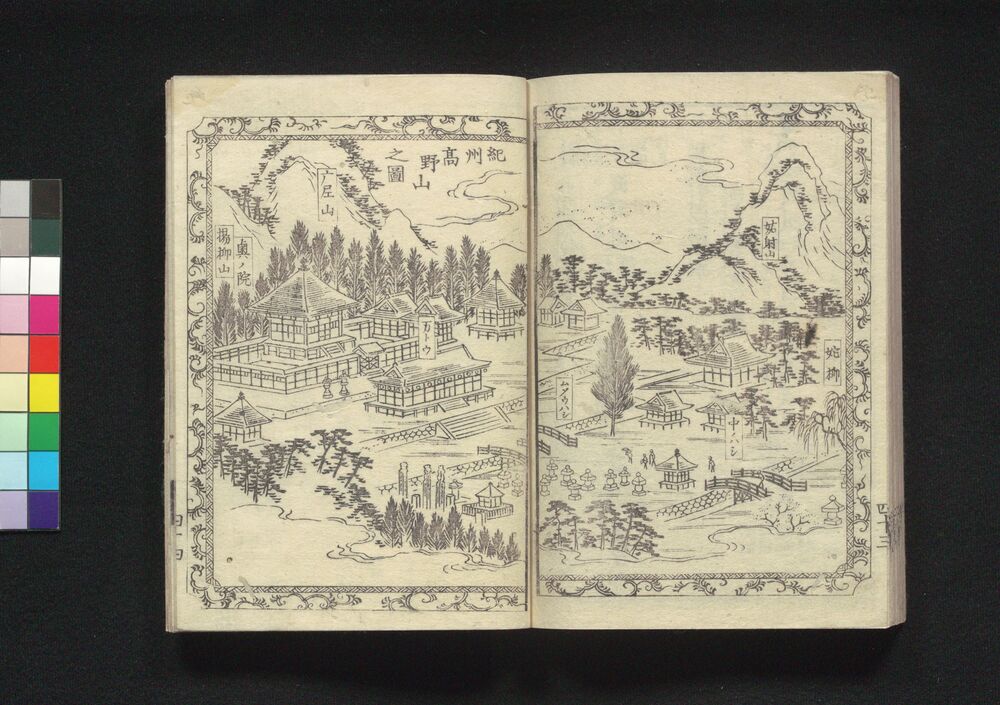 紀州高
野山
之圖
姑射山
蛇柳
中ノハシ
ムメウノハシ
万トウ
奥ノ院
楊柳山
四十三
四十四